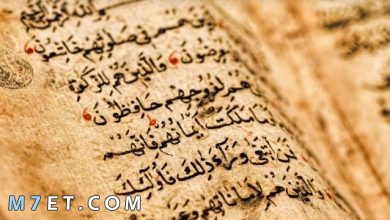 الَّذِينَ هُمْ فِي صَلٰوتِهِمْ خَاشِعُونَ
مُعْرِضُونَ وَالَّذِينَ هُمْ لِلزَّكٰوةِ
هُمْ لِفُرُوجِهِمْ حَافِظُونَ
مَا مَلَكَتْ اَيْمَانُهُمْ فَاِنَّهُمْ
ابْتَغٰى وَرَآءَ ذٰلِكَ فَاُولٰٓئِكَ
وَالَّذِينَ هُمْ لِاَمَانَاتِهِمْ
M7ET.COM